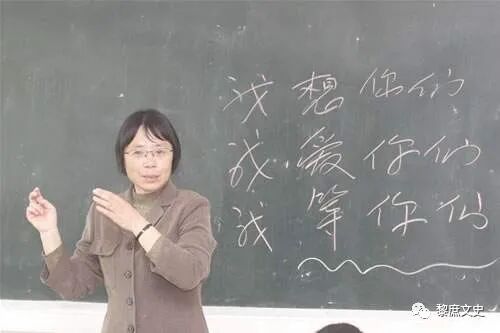 我想你们
我爱你们
我等你们
黎庶文史